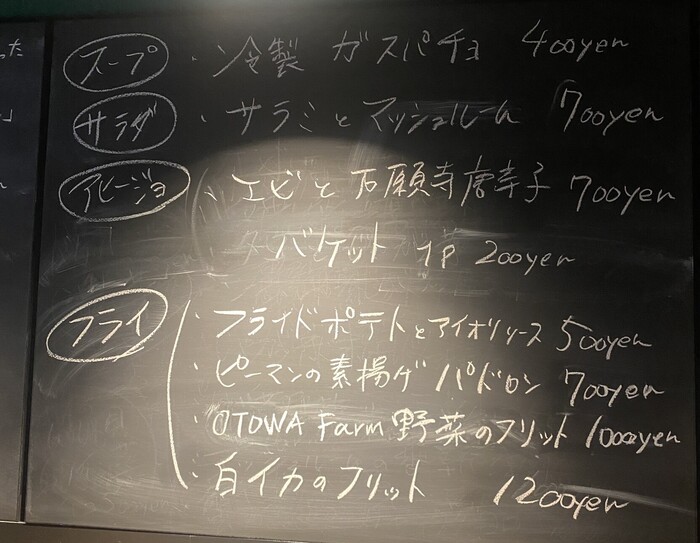 スープ ・冷製 ガスパチョ 400yen
サラダ ・サラミとマッシュルーム 700yen
アヒージョ ・エビと石願寺唐辛子 700yen
バケット 1P 200yen
フライ ・フライドポテトとアイオリソース 500yen
・ピーマンの素揚げ パドロン 700yen
・OTOWA Farm 野菜のフリット 1000yen
・白イカのフリット 1200yen